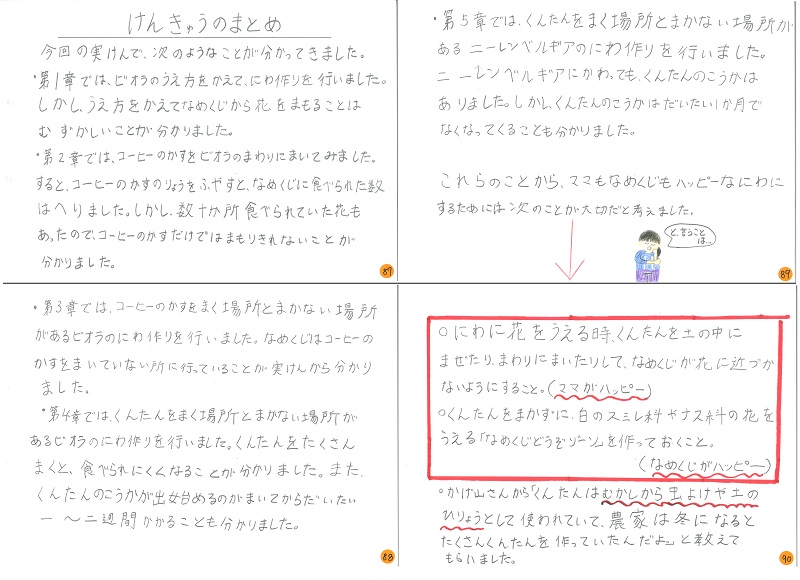 けんきゅうのまとめ
今回の実けんで、次のようなことが分かってきました。
・第1章では、ビオラのうえ方をかえて、にわ作りを行いました。
しかし、うえ方をかえてなめくじから花をまもることは
むずかしいことが分かりました。
・第2章では、コーヒーのかすをビオラのまわりにまいてみました。
すると、コーヒーのかすのりょうをふやすと、なめくじに食べられた数
はへりました。しかし、数十か所食べられていた花も
あったので、コーヒーのかすだけではまもりきれないことが
分かりました。
87
・第3章では、コーヒーのかすをまく場所とまかない場所
があるビオラのにわ作りを行いました。なめくじはコーヒーの
かすをまいていない所に行っていることが実けんから分かり
ました。
・第4章では、くんたんをまく場所とまかない場所が
あるビオラのにわ作りを行いました。くんたんをたくさん
まくと、食べられにくくなることが分かりました。また、
くんたんのこうかが出始めるのがまいてからだいたい
一〜二週間かかることも分かりました。
88
・第5章では、くんたんをまく場所とまかない場所が
あるニーレンベルギアのにわ作りを行いました。
ニーレンベルギアにかわっても、くんたんのこうかは
ありました。しかし、くんたんのこうかはだいたい1か月で
なくなってくることも分かりました。
これらのことから、ママもなめくじもハッピーなにわに
するためには次のことが大切だと考えました。
と、言うことは…
89
○にわに花をうえる時、くんたんを土の中に
まぜたり、まわりにまいたりして、なめくじが花に近づか
ないようにすること。(ママがハッピー)
○くんたんをまかずに、白のスミレ科やナス科の花を
うえる「なめくじどうぞゾーン」を作っておくこと。
(なめくじがハッピー)
○かげ山さんから「くんたんはむかしから虫よけや土の
ひりょうとして使われていて、農家は冬になると
たくさんくんたんを作っていたんだよ。」と教えて
もらいました。
90